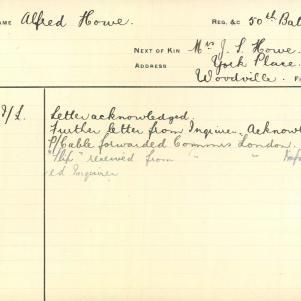 NAME Alfred Howe. REG. &C 50th Bat
NEXT OF KIN Mrs J. S. Howe.
ADDRESS York Place.
Woodville.
Letter acknowledged.
Further letter from Inquirer. Acknow
P/Cable forwarded Commrs London.
"Slip" received from " "
ed Inquirer